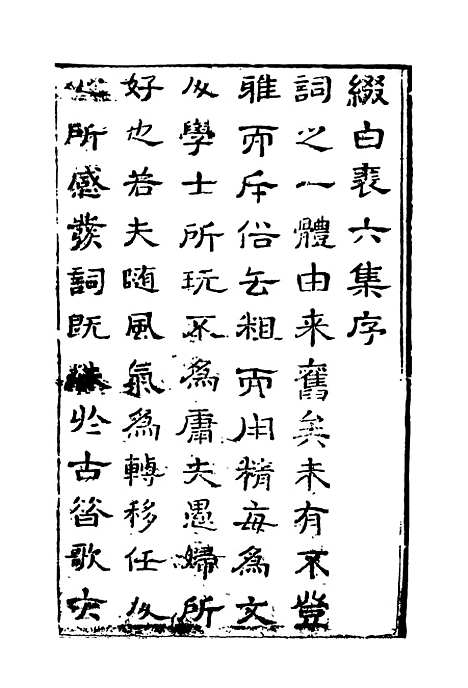 綴白裘六集序
詞之一體由来舊矣未有不登
雅而斥俗去粗而用精每為文
人學士所玩不為庸夫愚婦所
好也若夫随風氣為轉移任人
心所感發詞既殊於古昔歌大